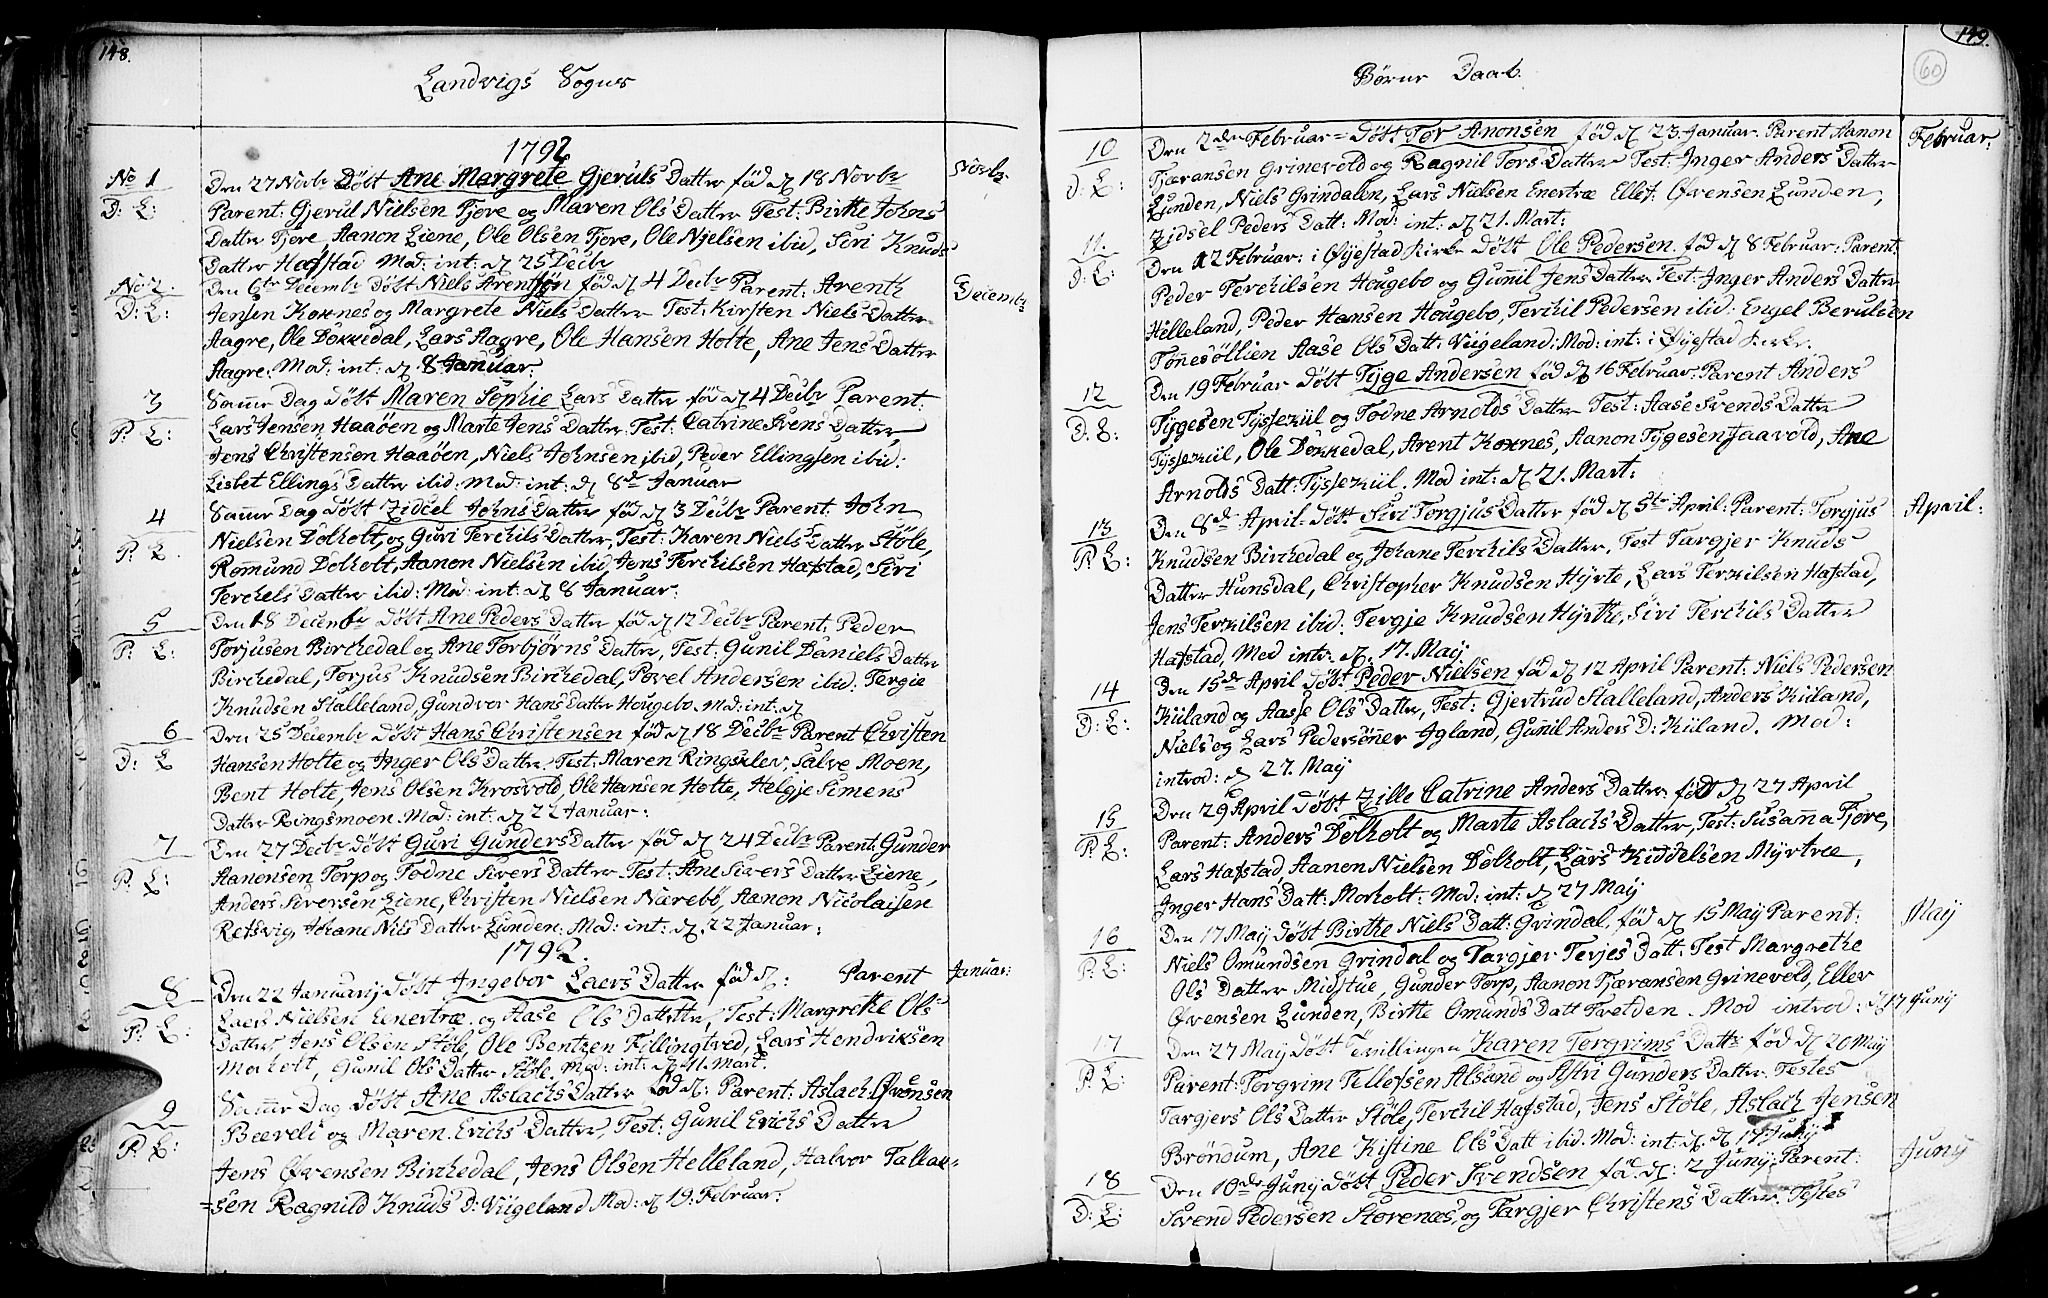 148.
Landvigs Sogns
1792
No 1
Den 27 Novbr Döbt Ane Margrete Gjeruls Datter föd d 18 Novbr
Novbr
D: L:
Parent: Gjerul Nielsen Fjore og Maren Ols Datter Test: Birthe Johns
Datter Fjore, Aanon Liene, Ole Olsen Fjore, Ole Njelsen ibid, Siri Knuds
Datter Hafstad Mod: int: d 25 Decbr
No 2.
Den 6te Decembr Döbt Niels Arentsön föd d 4 Decbr Parent: Arenth
Decembr
D: L:
Jensen Koxnes og Margrete Niels Datter Test: Kirsten Niels Datter
Aagre, Ole Dokkedal, Lars Aagre, Ole Hansen Holte, Ane Jens Datter
Aagre. Mod: int: d 8 Januar:
3
Samme Dag Döbt Maren Sophie Lars Datter föd d 4 Decbr Parent:
P: L:
Lars Jensen Haaöen og Marte Jens Datter Test: Catrine Svens Datter
Jens Christensen Haaöen, Niels Johnsen ibid, Peder Ellingsen ibid:
Lisbet Ellings Datter ibid: Mod: int: d 8de Januar
4
Samme Dag Döbt Zidsel Johns Datter föd d 3 Decbr Parent: John
P: L.
Nielsen Dolholt, og Guri Terchils Datter, Test: Karen Niels Datter Stöle,
Romund Dolholt, Aanon Nielsen ibid, Jens Terchilsen Hafstad, Siri
Terchels Datter ibid: Mod: int: d 8 Januar:
5
Den 18 Decembr Döbt Ane Peders Datter föd d 12 Decbr Parent: Peder
P: L:
Torjusen Birchedal og Ane Torbjörns Datter, Test: Gunil Daniels Datter
Birchedal, Torjus Knudsen Birchedal, Povel Andersen ibid: Tergie
Knudsen Stalleland, Gundvor Hans Datter Hougebo. Mod: int: d
6
Den 25 Decembr Döbt Hans Christensen föd d 18 Decbr Parent Christen
D: L
Hansen Holte og Inger Ols Datter, Test: Maren Ringsklev, Salve Moen,
Bent Holte, Jens Olsen Krosvold, Ole Hansen Holte, Helgje Simens
Datter Ringsmoen Mod: int: d 22 Januar:
7
Den 27 Decbr Döbt Guri Gunders Datter föd d 24 Decbr Parent: Gunder
P: L:
Aanonsen Torp og Todne Sivers Datter Test: Ane Sivers Datter Liene,
Anders Siversen Liene, Christen Nielsen Nærebö, Aanon Nicolaisen
Reisvig, Johane Nils Datter Lunden: Mod: int: d. 22 Januar:
1792.
8
Den 22 Januarij Döbt Ingebor Laers Datter föd d: Parent
Januar:
P: L:
Laers Nielsen Eenertræ og Aase Ols Datter, Test: Margrethe Ols
Datter Jens Olsen Stöle, Ole Bentzen Fillingtved, Lars Hendriksen
Morholt, Gunil Ols Datter Stöle. Mod: int: d 11. Mart:
9
Samme Dag Döbt Ane Aslachs Datter föd d: Parent: Aslach Övensen
P: L:
Beeveli og Maren Erichs Datter, Test: Gunil Erichs Datter
Jens Övensen Birchedal, Jens Olsen Helleland, Halvor Tallak=
=sen Ragnild Knuds D: Viigeland Mod: d 19. Februar:
149.
60
Börne Daab.
10
Den 2den Februar= Döbt Tor Anonsen föd d 23. Januar. Parent Aanon
Februar:
D: L:
Tjæransen Grinevold og Ragnil Tors Datter Test: Inger Anders Datter
Lunden, Niels Grindalen, Lars Nielsen Enertræ Ellef: Övensen Lunden,
Zidsel Peders Datt: Mod: int: d 21. Mart:
11.
Den 12 Februar: i Öyestad Kirke Döbt Ole Pedersen föd d 8 Februar: Parent:
D: L:
Peder Terchilsen Hougebo og Gunil Jens Datter Test: Inger Anders Datter
Helleland, Peder Hansen Hougebo, Terchil Pedersen ibid: Engel Berulsen
Tönnesöllien Aase Ols Datt: Viigeland: Mod: int: i Öyestad Kirke.
12
Den 19 Februar Döbt Tyge Andersen föd d 16 Februar: Parent Anders
D: L:
Tygesen Tyssekiil og Todne Arnolds Datter Test: Aase Svends Datter
Tyssekiil, Ole Dokkedal, Arent Koxnes, Aanon Tygesen Jaavold, Ane
Arnolds Datt: Tyssekiil. Mod int: d 21. Mart:
13
Den 8de April: Döbt Siri Torgjus Datter föd d 5te April: Parent: Torgjus
April:
P: L:
Knudsen Birchedal og Johane Terchils Datter, Test Targjer Knuds
Datter Hunsdal, Christopher Knudsen Hyrte, Lars Terkilsen Hafstad,
Jens Terkilsen ibid: Tergje Knudsen Hyrthe, Siri Terchils Datter
Hafstad, Mod intr: d. 17. Maij
14
Den 15de April Döbt Peder Nielsen föd d 12 April Parent: Niels Pedersen
D: L:
Kiiland og Aasse Ols Datter, Test: Gjertrud Stalleland, Anders Kiiland,
Niels og Lars Pedersönner Igland, Gunil Anders D: Kiiland. Mod:
introd: d 27. Maij
15
Den 29 April Döbt Zille Catrine Anders Datter föd d 27 April
P: L:
Parent: Anders Dolholt og Marte Aslachs Datter, Test: Susanna Fjore,
Lars Hafstad, Aanon Nielsen Dolholt, Lars Kiddelsen Myrtræ,
Inger Hans Datt: Morholt: Mod: int: d 27 Maij
16
Den 17 Maij Döbt Birthe Niels Datt: Grindal, föd d 15 Maij Parent:
Maij
P: L:
Niels Omundsen Grindal og Targjer Terjes Datt: Test Margrethe
Ols Datter Midstue, Gunder Torp, Aanon Tjæransen Grinevold, Ellev
Övensen Lunden, Birthe Omunds Datt Tvelden. Mod introd: d 17 Junij
17
Den 27 Maij Döbt Tvillingen Karen Torgrims Dattr föd d 20 Maij
P: L:
Parent: Torgrim Tellofsen Alsand og Astri Gunders Datter Testes
Targjers Ols Datter Stöle, Terchil Hafstad, Jens Stöle, Aslach Jensen
Bröndum, Ane Kistine Ols Datt ibid. Mod: int: d. d 17 Junij
18
Den 10de Junij Döbt Peder Svendsen föd. d: 2 Junij. Parent:
Junij
D: L:
Svend Pedersen Storenæs, og Targjer Christens Datter Testes